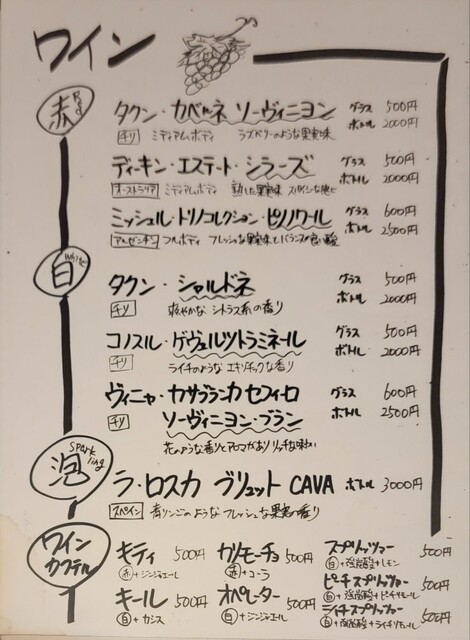 ワイン
赤 Red
タクン・カベルネ ソーヴィニヨン グラス 500円
ボトル 2000円
チリ ミディアムボディ ラズベリーのような果実味
ディーキン・エステート・シラーズ グラス 500円
ボトル 2000円
オーストラリア ミディアムボディ 熟した果実味
ミッシェル・トリノコレクション・ピノノワール グラス 600円
ボトル 2500円
アルゼンチン フルボディ フレッシュな果実味とバランスの良い酸
白 White
タクン・シャルドネ グラス 500円
ボトル 2000円
チリ 爽やかな シトラス系の香り
コノスル・ゲヴュルツトラミネール グラス 500円
ボトル 2000円
チリ ライチのような エキゾチックな香り
ヴィニャ・カサブランカ セフィーロ グラス 600円
チリ ソーヴィニヨン・ブラン ボトル 2500円
花のような香りとアロマがあり リッチな味わい
泡 Sparkling
ラ・ロスカ ブリュット CAVA ボトル 3000円
スペイン 青リンゴのような フレッシュな果実の香り
ワインカクテル
キティ 500円
赤+ジンジャエール
カリモーチョ 500円
赤+コーラ
スプリッツァー 500円
白+強炭酸+レモン
キール 500円
白+カシス
オペレーター 500円
白+ジンジャエール
ピーチスプリッツァー 500円
白+強炭酸+ピーチリキュール
ライチスプリッツァー 500円
白+強炭酸+ライチリキュール